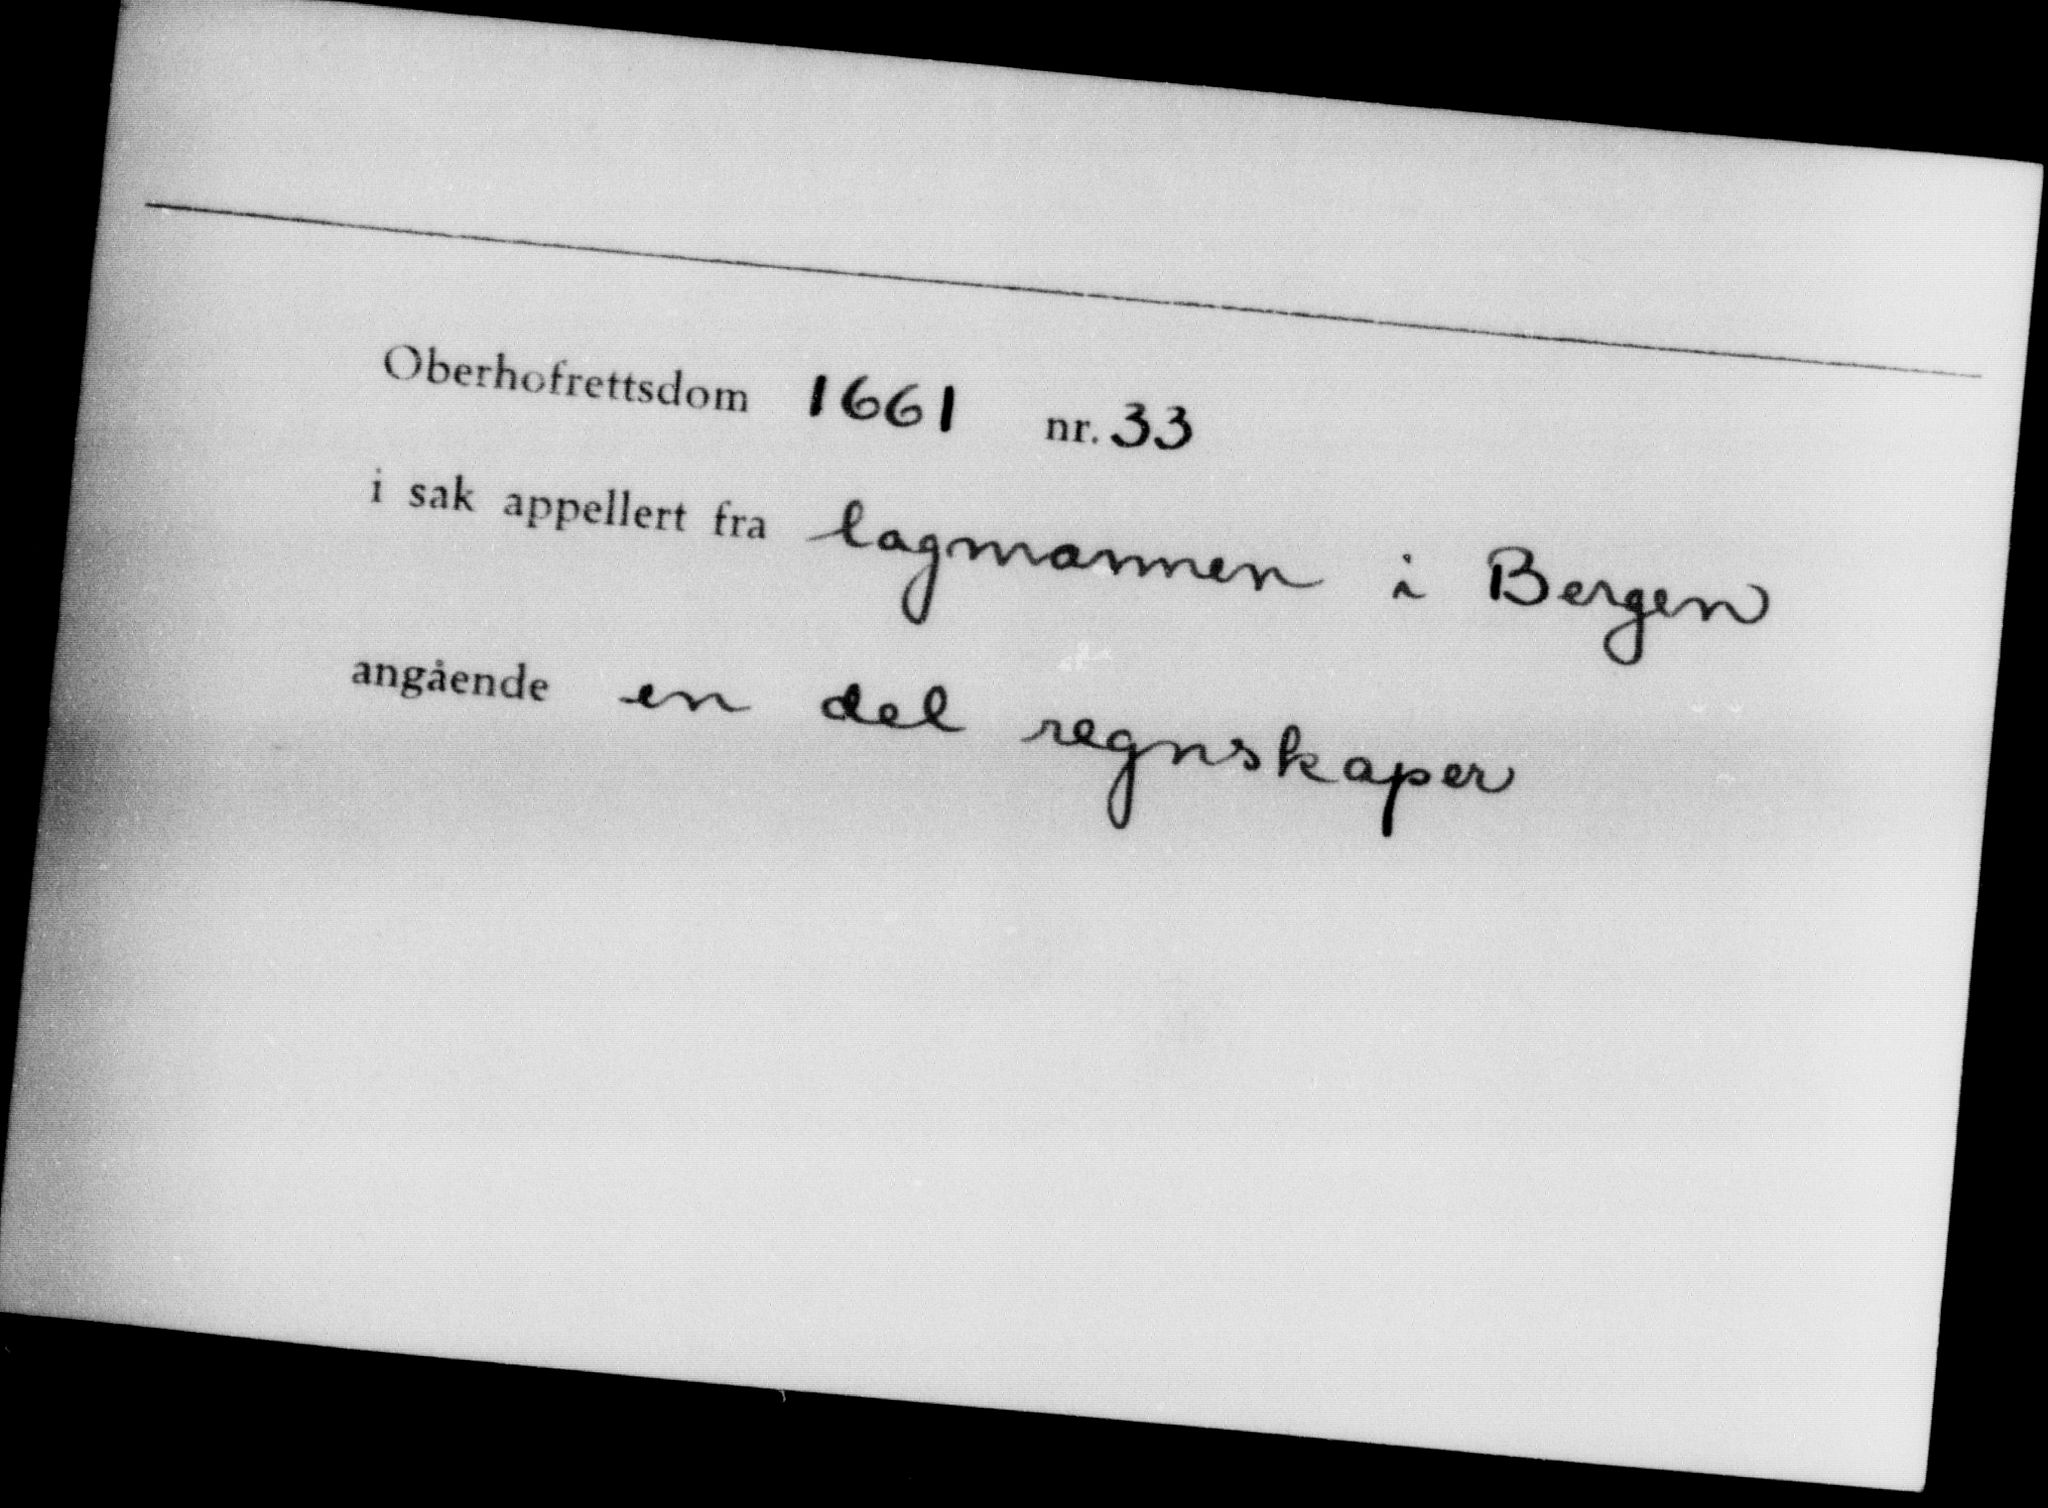 Oberhofrettsdom 1661 nr. 33
i sak appellert fra lagmannen i Bergen
angående en del regnskaper